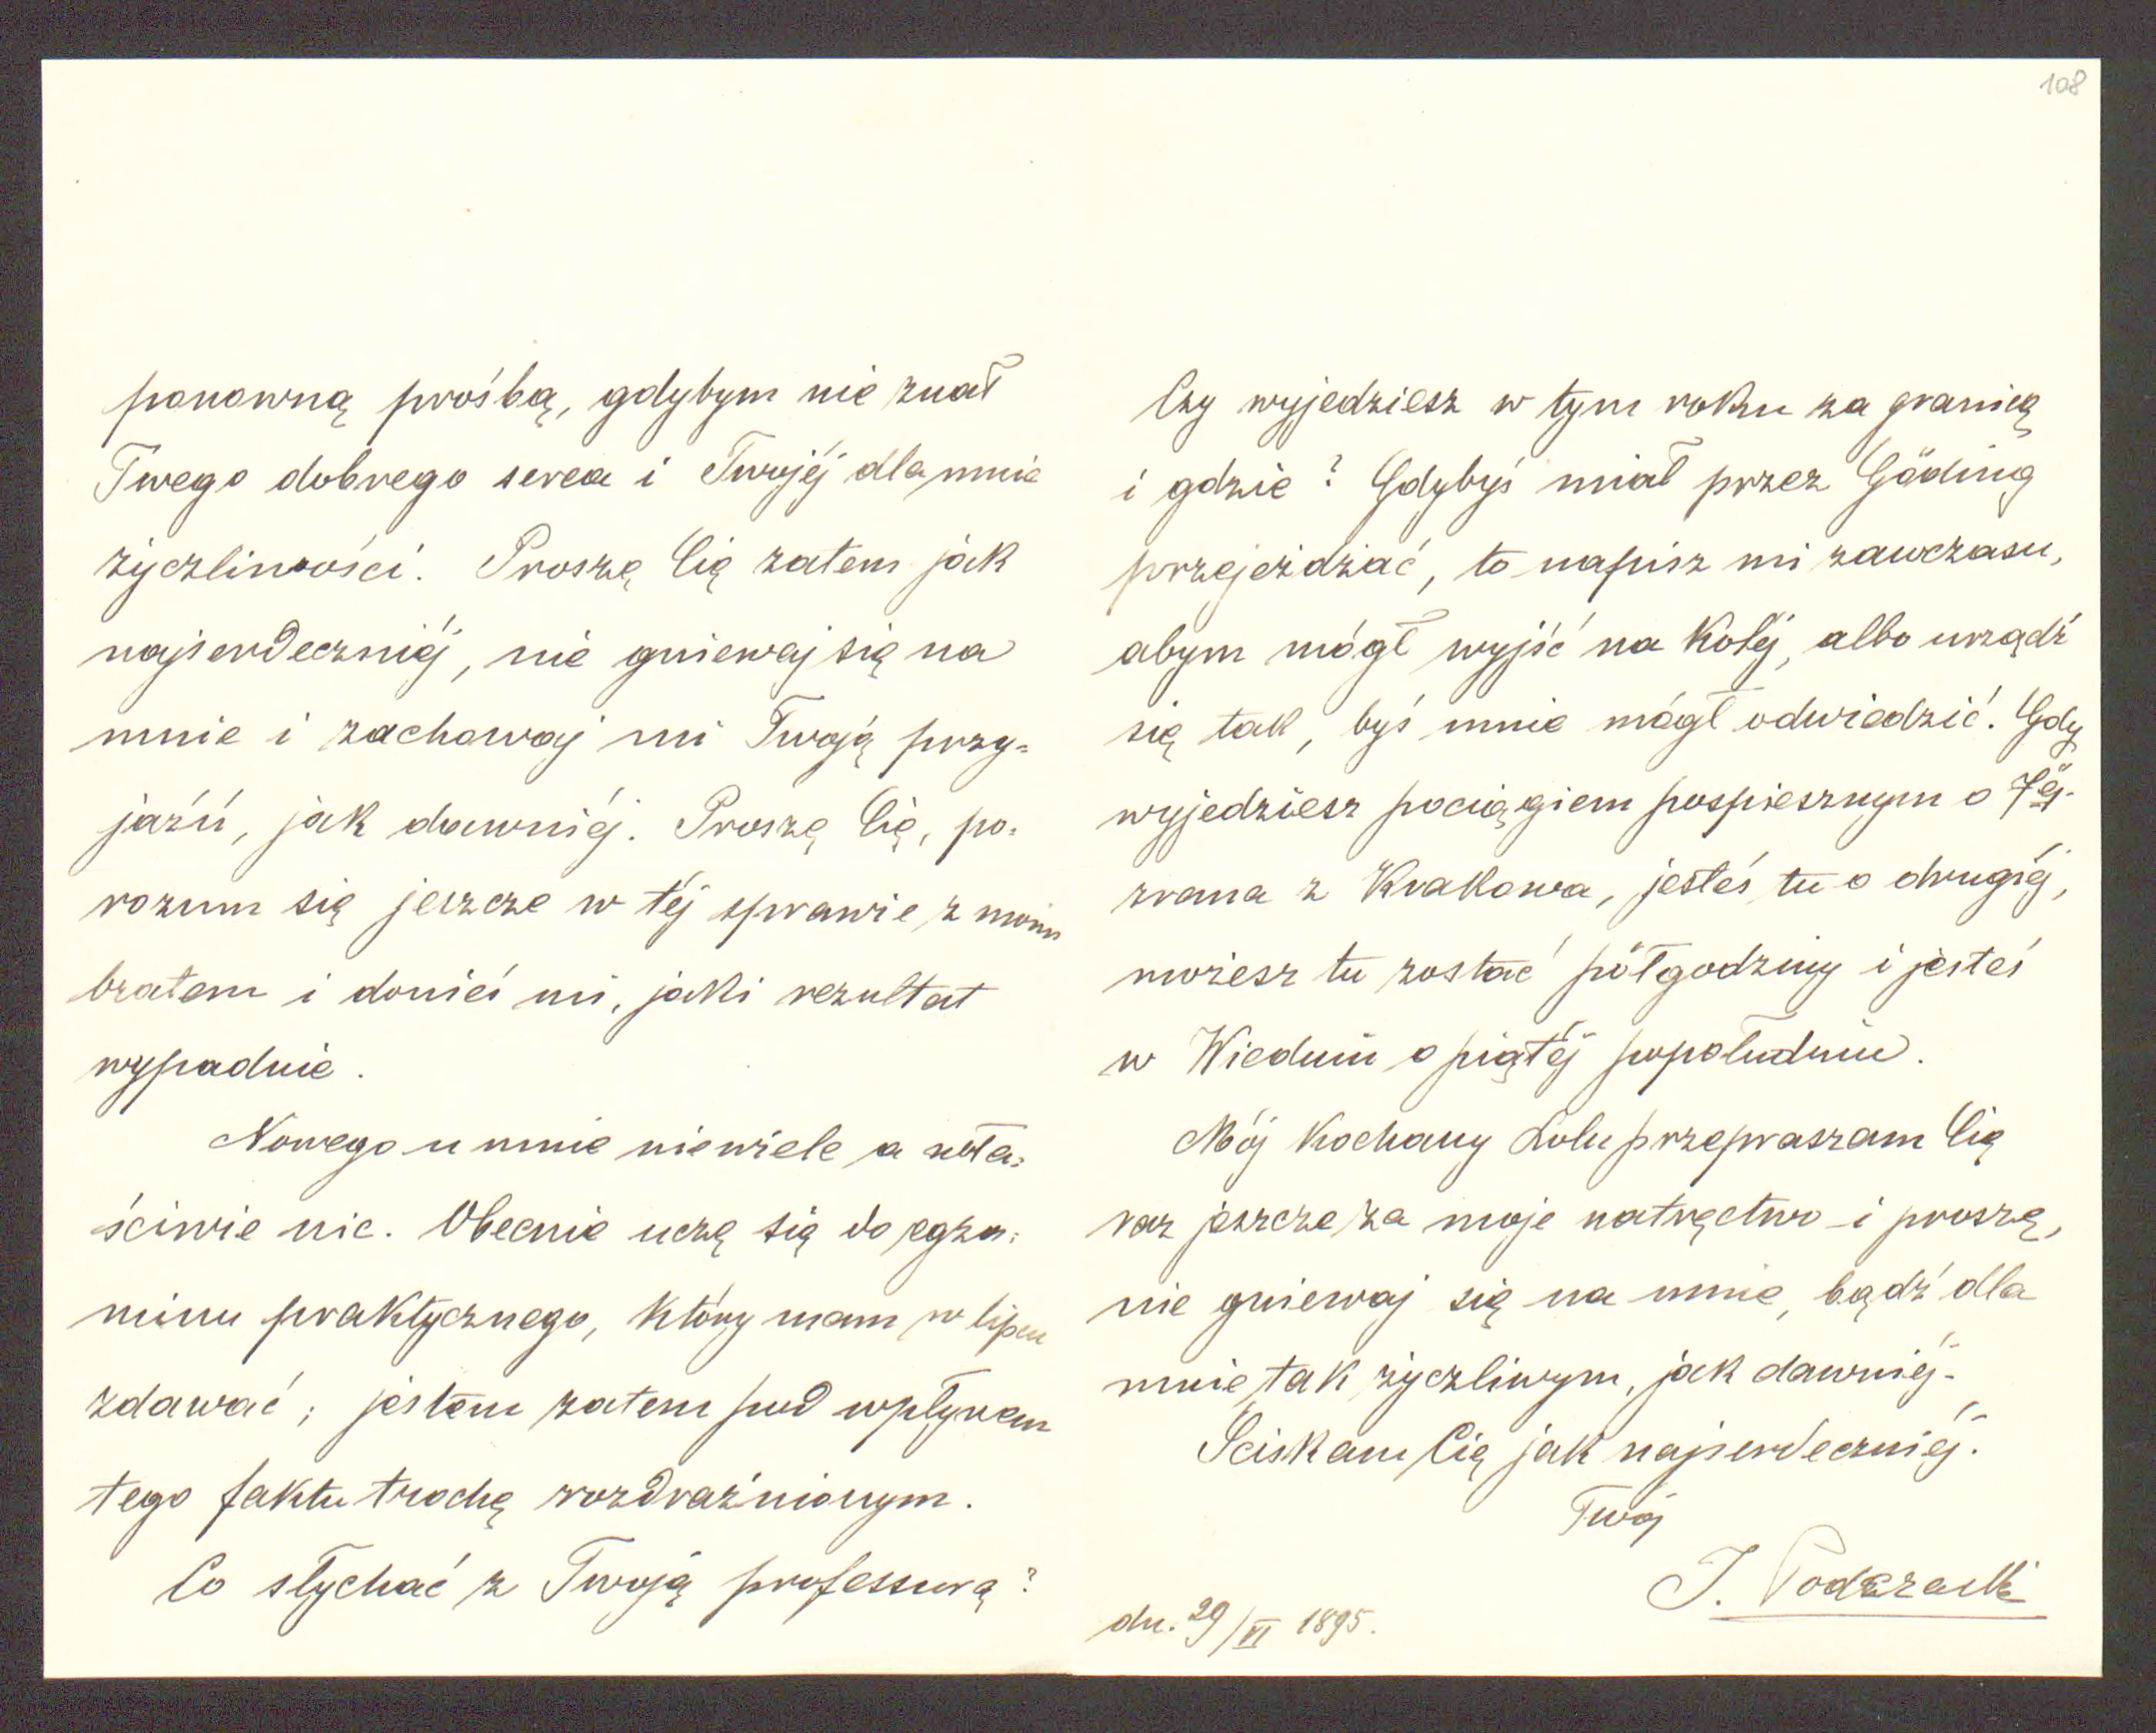 108
ponowną prośbą, gdybym nie znał
Twego dobrego serca i Twojéj dla mnie
życzliwości. Proszę Cię zatem jak
najserdeczniéj, nie gniewaj się na
mnie i zachowaj mi Twoją przy=
jaźń, jak dawniéj. Proszę Cię, po=
rozum się jeszcze w téj sprawie z moim
bratem i donieś mi, jaki rezultat
wypadnie.
Nowego u mnie niewiele a wła=
ściwie nic. Obecnie uczę się do egza=
minu praktycznego, który mam w lipcu
zdawać; jestem zatem pod wpływem
tego faktu trochę rozdrażnionym.
Co słychać z Twoją professurą?
Czy wyjedziesz w tym roku za granicę
i gdzie? Gdybyś miał przez Göding
przejeżdżać, to napisz mi zawczasu,
abym mógł wyjść na koléj, albo urządź
się tak, byś mnie mógł odwiedzić. Gdy
wyjedziesz pociągiem pospiesznym o 7éj
zrana z Krakowa, jesteś tu o drugiéj,
możesz tu zostać półgodziny i jesteś
w Wiedniu o piątéj popołudniu.
Mój kochany Lolu przepraszam Cię
raz jeszcze za moje natręctwo i proszę,
nie gniewaj się na mnie, bądź dla
mnie tak życzliwym, jak dawniéj.
Ściskam Cię jak najserdeczniéj.
Twój
J.
dn. 29/VI 1895.